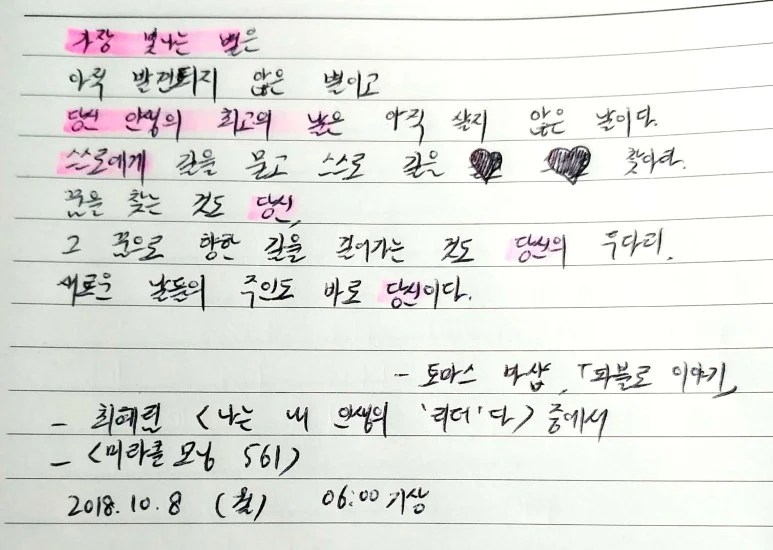 가장 빛나는 별은
아직 발견되지 않은 별이고
당신 인생의 최고의 날은 아직 살지 않은 날이다.
스스로에게 길을 묻고 스스로 길을 찾아라.
꿈을 찾는 것도 당신,
그 꿈으로 향한 길을 걸어가는 것도 당신의 두다리.
새로운 날들의 주인도 바로 당신이다.
- 토마스 바샵, 「파블로 이야기」
- 최혜림 <나는 내 인생의 '리더'다> 중에서
- <미라클 모닝 561>
2018.10.8 (월) 06:00 기상